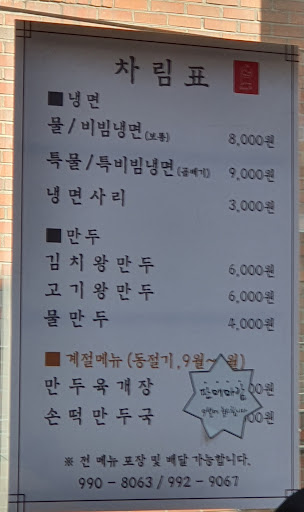 차림표
■냉면
물/비빔냉면(보통) 8,000원
특물/특비빔냉면(곱빼기) 9,000원
냉면사리 3,000원
■만두
김치왕만두 6,000원
고기왕만두 6,000원
물만두 4,000원
■계절메뉴(동절기, 9월~ 월)
만두육개장 00원
손떡만두국 00원
판매마감
※ 전 메뉴 포장 및 배달 가능합니다.
990 – 8063 / 992 – 9067